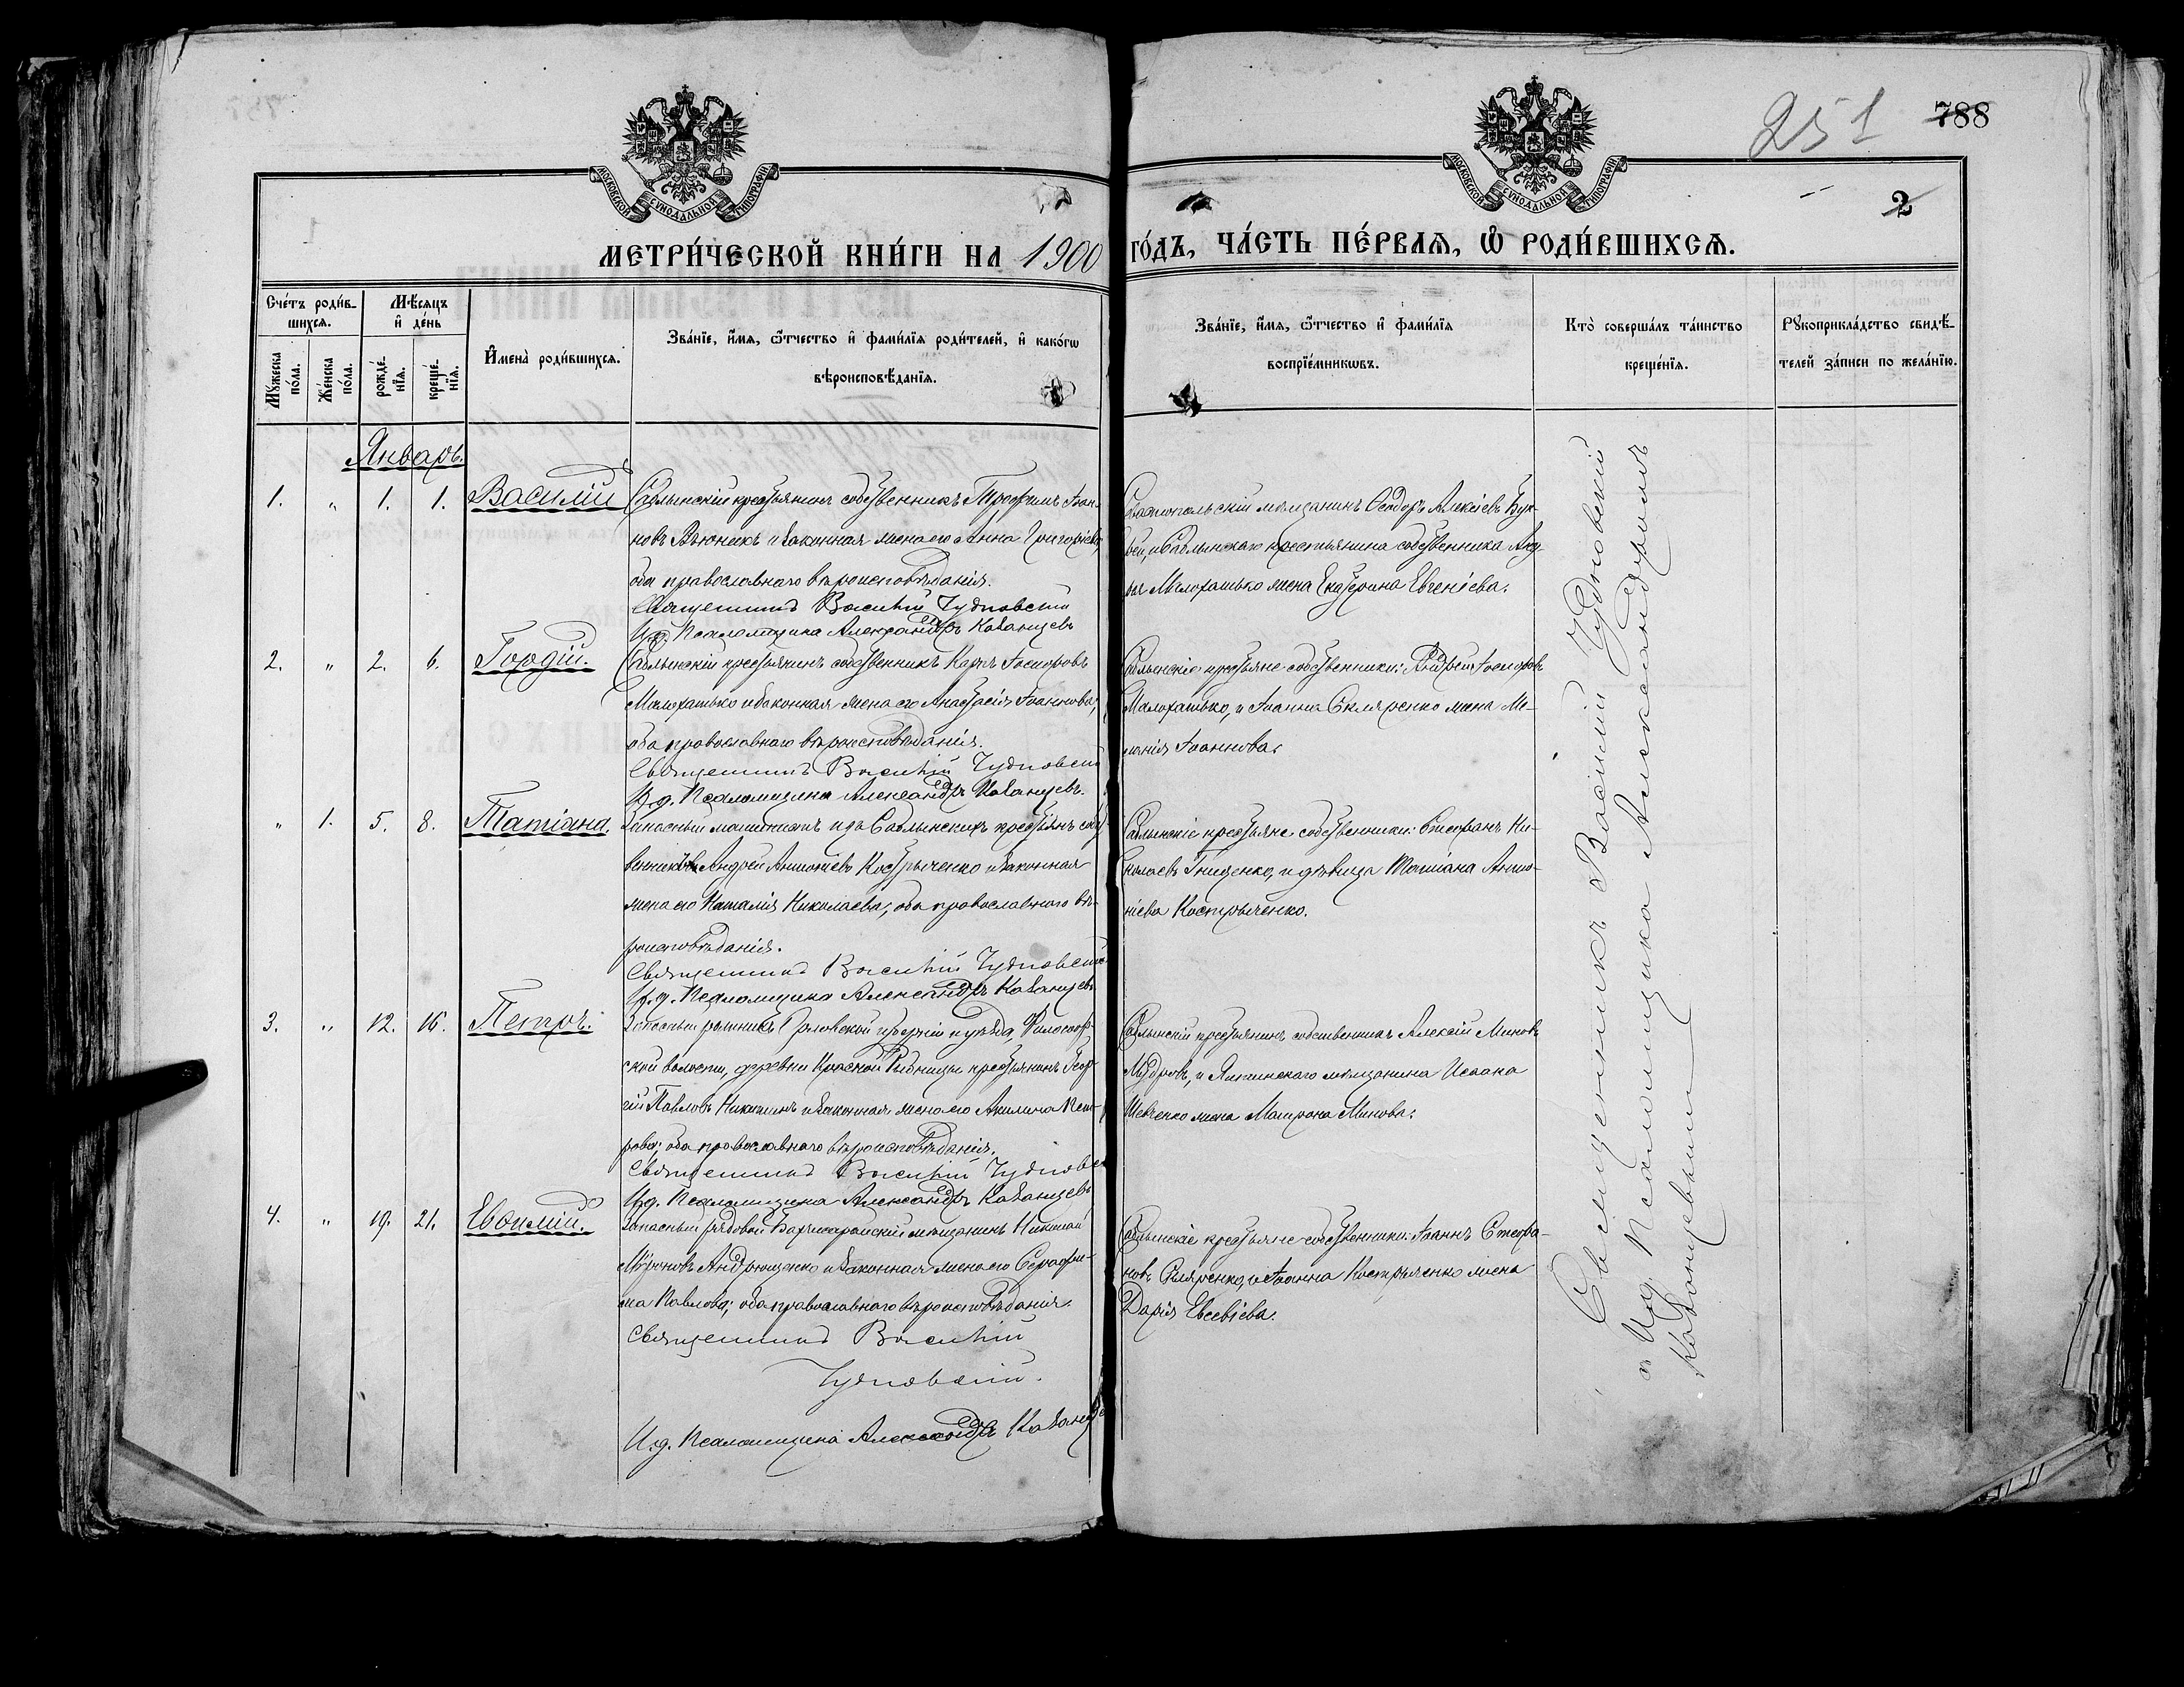 251 788
2
МОСКОВСКОЙ СУНОДАЛЬНОЙ ТИПОГРАФІИ
МОСКОВСКОЙ СУНОДАЛЬНОЙ ТИПОГРАФІИ
МЕТРИ́ЧЕСКОЙ КНИ́ГИ НА 1900 ГО́ДЪ, ЧА́СТЬ ПЕ́РВАѦ, Ѽ РОДИ́ВШИХСѦ.
Сче́тъ роди́в-
шихсѧ.
Мꙋжеска по́ла.
Же́нска по́ла.
Мѣ́сѧцъ
и҆ де́нь
рожде́-
нїѧ.
креще́-
нїѧ.
И҆мена̀ роди́вшихсѧ.
Зва́нїе, и҆́мѧ, ѻ҆́тчество и҆ фами́лїѧ роди́телей, и҆ како́гѡ
вѣроисповѣ́данїѧ.
Зва́нїе, и҆́мѧ, ѻ҆́тчество и҆ фами́лїѧ
воспрїе́мникѡвъ.
Кто̀ соверша́лъ та́инство
креще́нїѧ.
Рꙋкоприкла́дство свидѣ́-
телей за́писи по жела́нїю.
Январь.
1. " 1. 1. Василій
Саблынскій крестьянинъ собственникъ Трофимъ Іоан-
новъ Вьюникъ и законная жена его Анна Григоріева,
оба православнаго вѣроисповѣданія.
Священникъ Василій Чудновскій
И.д. Псаломщика Александръ Казанцевъ
Севастопольскій мѣщанинъ Ѳеодоръ Алексіевъ
и Саблынскаго крестьянина собственника
Малохатько жена Екатерина Евгеніева.
2. " 2. 6. Гордій.
Саблынскій крестьянинъ собственникъ Карпъ Іосифовъ
Малохатько и законная жена его Анастасія Іоаннова,
оба православнаго вѣроисповѣданія.
Священникъ Василій Чудновскій
И.д. Псаломщика Александръ Казанцевъ.
Саблынскіе крестьяне-собственники: Андрей Іосифовъ
Малохатько, и Іоанна Скляренко жена Ме-
ланія Іоаннова.
" 1. 5. 8. Татіана.
Запасный машинистъ изъ Саблынскихъ крестьянъ собст-
венниковъ Андрей Антоніевъ Костриченко и законная
жена его Наталія Николаева, оба православнаго вѣ-
роисповѣданія.
Священникъ Василій Чудновскій
И.д. Псаломщика Александръ Казанцевъ
Саблынскіе крестьяне собственники: Стефанъ Ни-
колаевъ Гнизенко, и дѣвица Татіана Анто-
ніева Костриченко.
3. " 12. 16. Петръ.
Запасный Орловской губерніи и уѣзда, Философ-
ской волости, деревни Красной Рыбницы крестьянинъ Геор-
гій Павловъ Никитинъ и законная жена его Акилина Пет-
рова; оба православнаго вѣроисповѣданія.
Священникъ Василій Чудновскій
И.д. Псаломщика Александръ Казанцевъ
Саблынскій крестьянинъ собственникъ Алексій Миновъ
Мудровъ, и Ялтинскаго мѣщанина Исаака
Шевченко жена Матрона Минова.
4. " 19. 21. Евѳимій.
Запасный рядовой Бахчисарайскій мѣщанинъ Николай
Мироновъ Андрющенко и законная жена его Серафи-
ма Павлова; оба православнаго вѣроисповѣданія.
Священникъ Василій
Чудновскій.
И.д. Псаломщика Александръ Казанцевъ
Саблынскіе крестьяне-собственники: Іоаннъ Стефа-
новъ Скляренко, и Іоанна Костриченко жена
Дарія Евсевіева.
Священникъ Василій Чудновскій
и И.д. Псаломщика Александромъ
Казанцевымъ